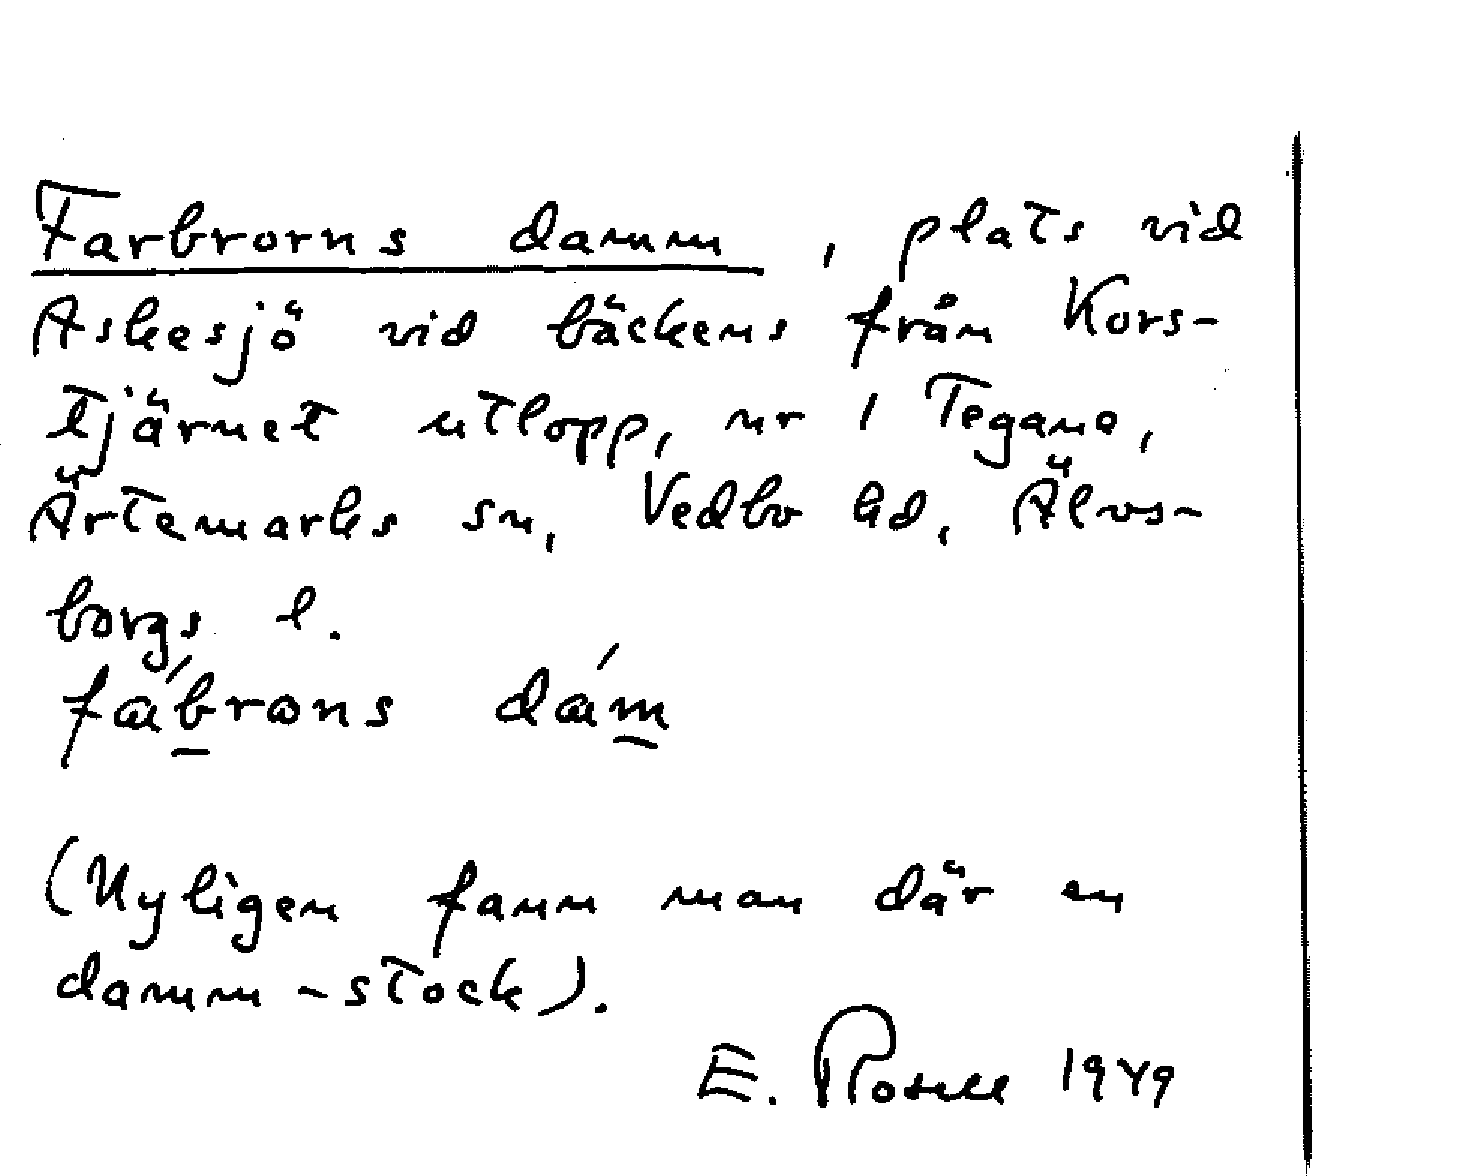 Farbrorns damm, plats vid
Askesjö vid bäckens från Kors-
tjärnet utlopp, nr 1 Tegane,
Ärtemarks sn, Vedbo hd, Älvs-
borgs l.
fábrons dám
(Nyligen fann man där en
damm-stock).
E. Rosell 1949